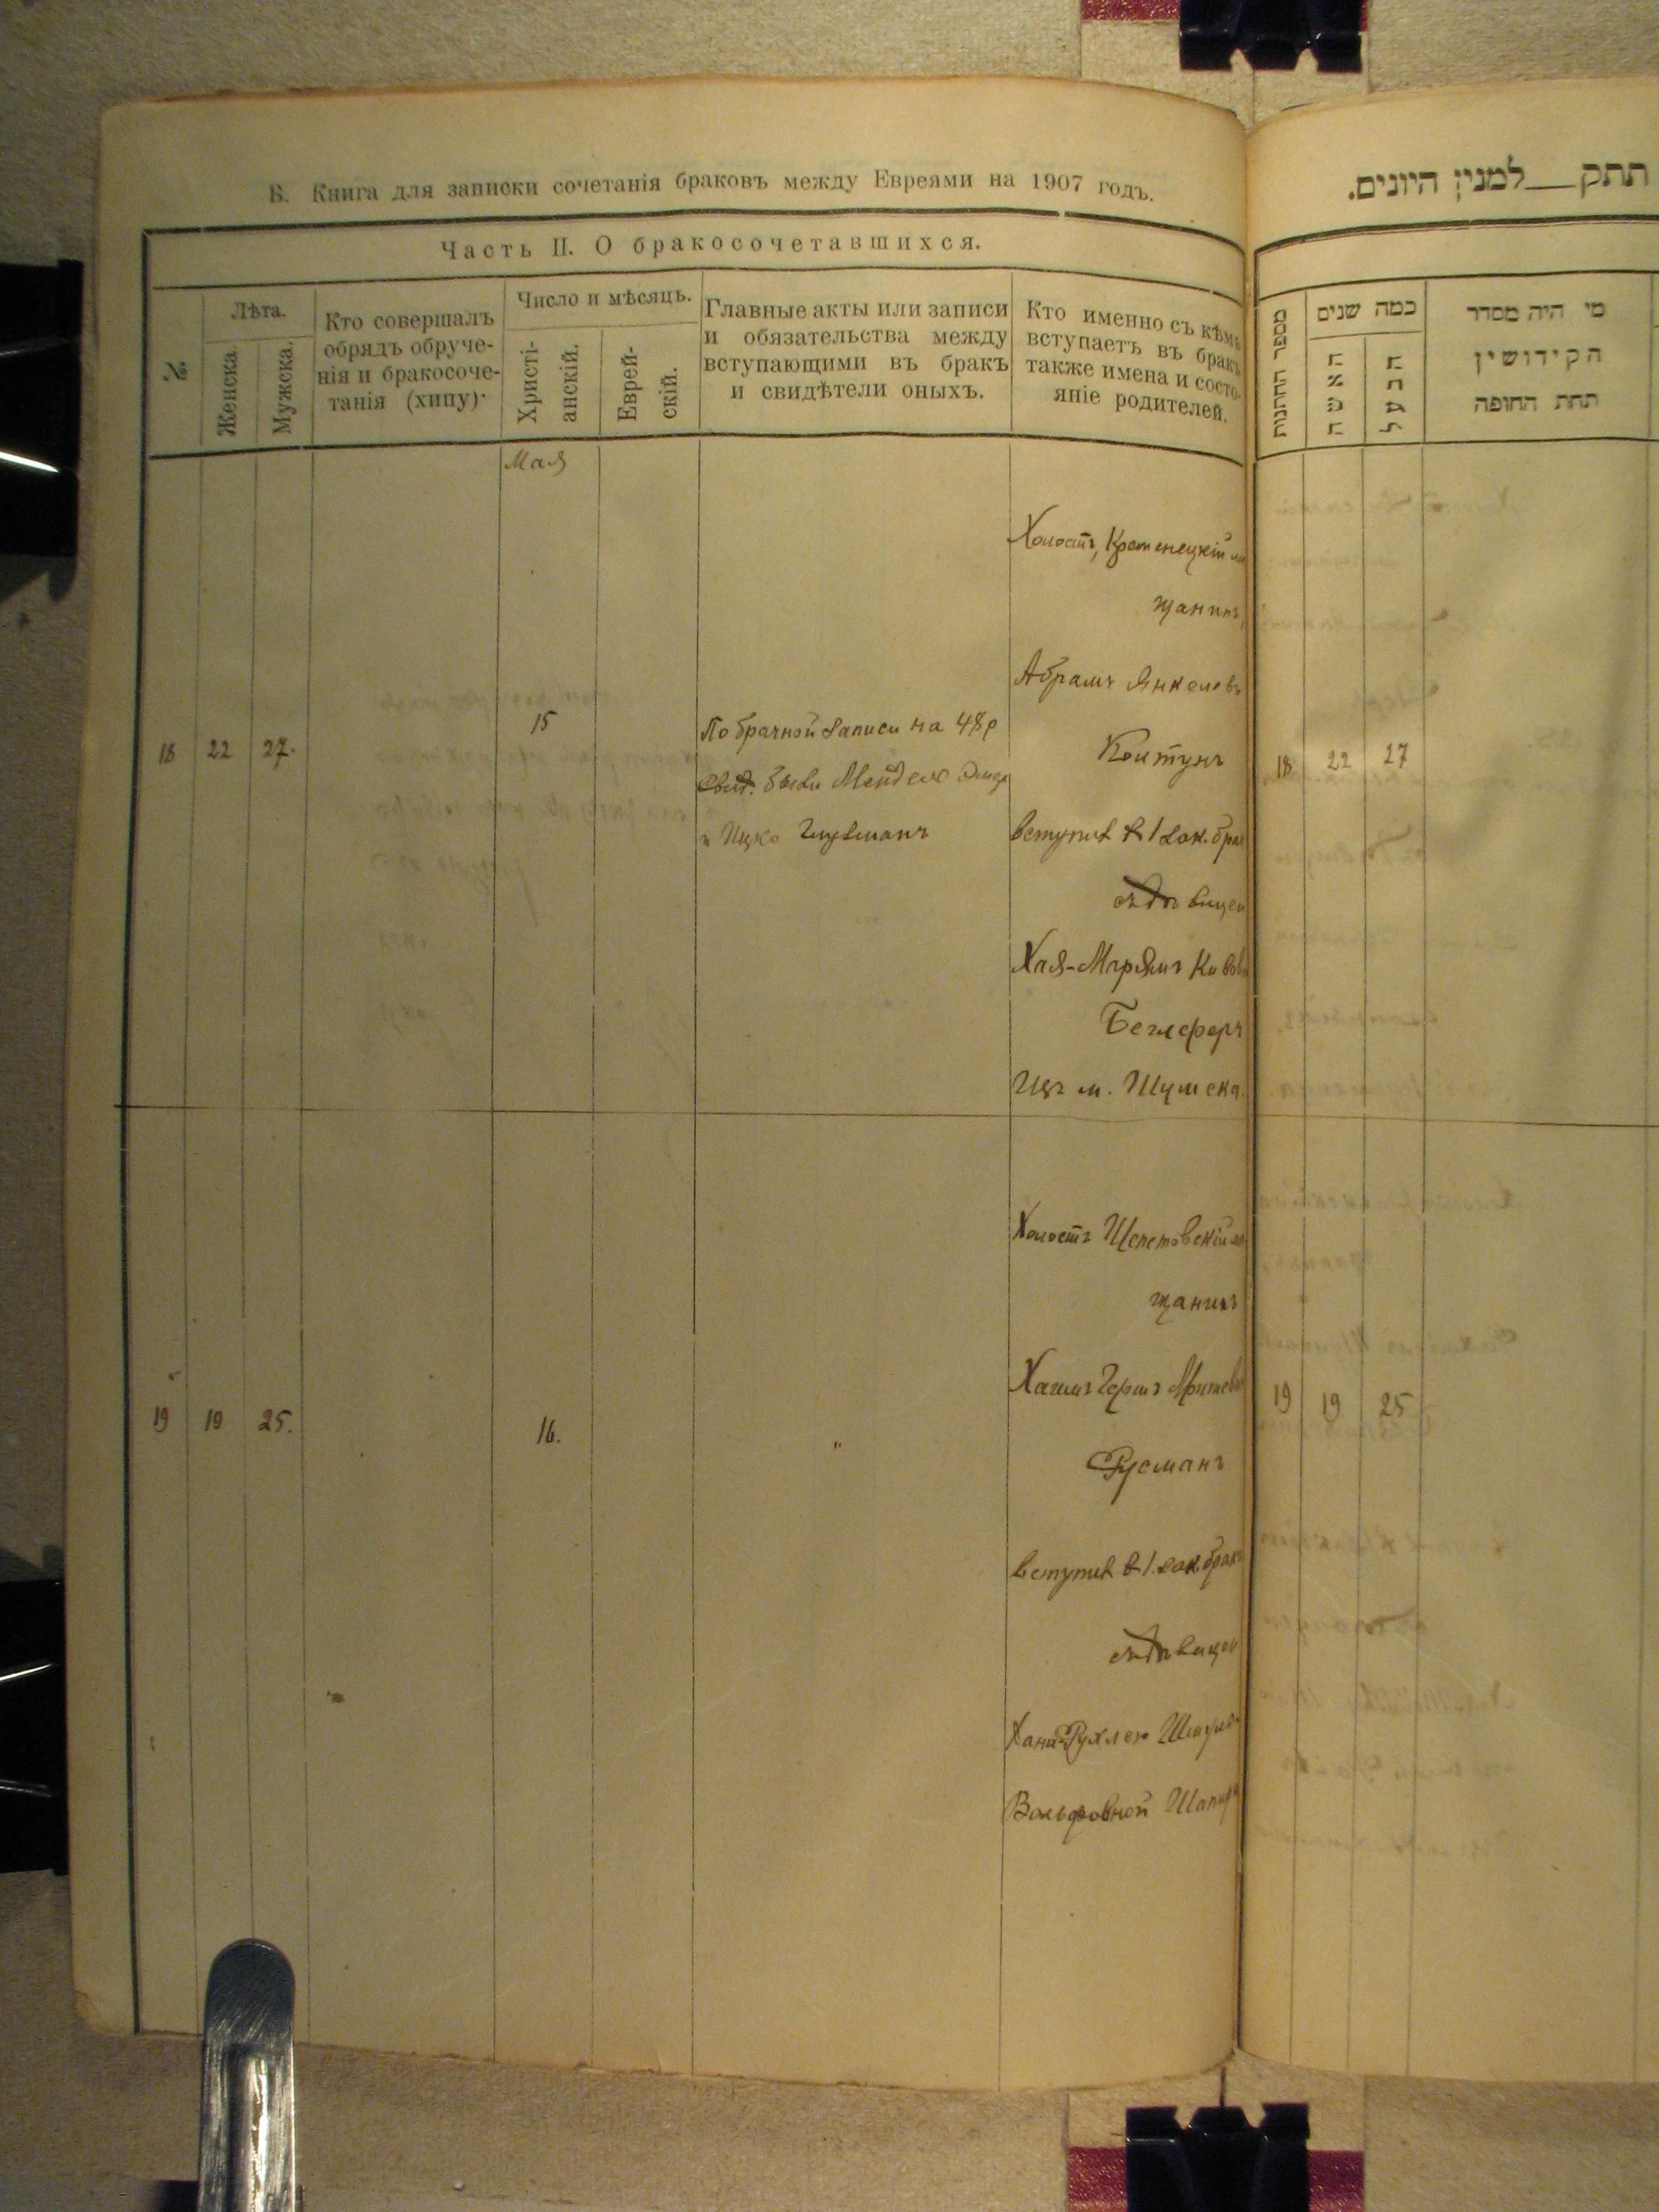 В. Книга для записки сочетанія браковъ между Евреями на 1907 годъ.
Часть II. О бракосочетавшихся.
№
Лѣта.
Женска.
Мужска.
Кто совершалъ
обрядъ обруче-
нія и бракосоче-
танія (хипу).
Число и мѣсяцъ.
Христі-
анскій.
Еврей-
скій.
Главные акты или записи
и обязательства между
вступающими въ бракъ
и свидѣтели оныхъ.
Кто именно съ кѣмъ
вступаетъ въ бракъ
также имена и состо-
яніе родителей.
Мая
18 22 27.
15
По брачной записи на 48 р
свид. были Мендель
и Ицко
Холостъ, Кременецкій мѣ
щанинъ,
Абрамъ Янкелевъ
Колтунъ
вступил в 1 зак. брак
съ дѣвицей
Хая-Марьямъ
Безлеферъ
Изъ м. Шумска.
19 19 25.
16.
"
Холостъ Шепетовскій мѣ
щанинъ
Хаимъ Гершъ
Русманъ
вступил в 1. зак. брак
съ дѣвицей
Хана Рухлею
Вольфовной
תתק__למנין היונים.
מספר החתונות
כמה שנים
האשה
הבעל
מי היה מסדר
הקידושין
תחת החופה
18 22 27
19 19 25